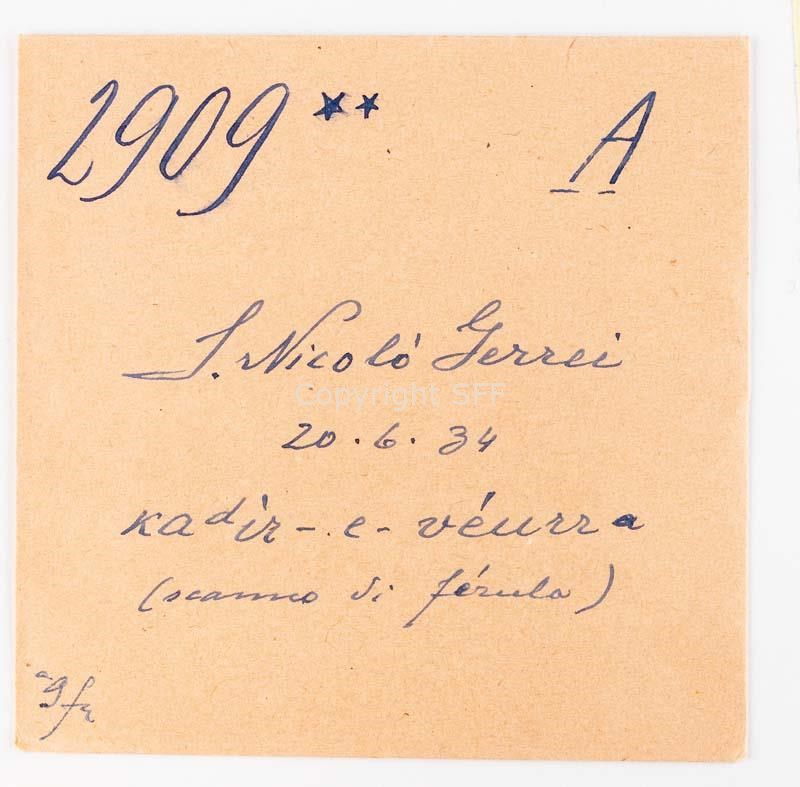 2909 ** A
S. Nicolò Gerrei
Copyright SFF
20.6.34
kadir-e-véurra
(scanno di férula)